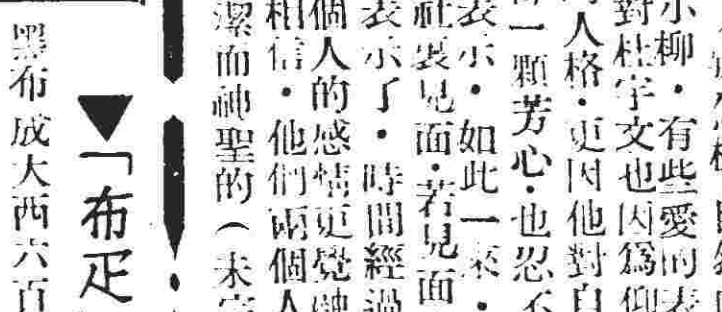 小柳・有些愛的表
對杜宇文也因爲仰
人格・更因他對自
一顆芳心・也忍不
表示・如此一來・
社裏見面・若見面
表示了・時間經過
個人的感情更覺融
相信・他們兩個人
潔而神聖的（未完
▼「布疋
墨布成大西六百